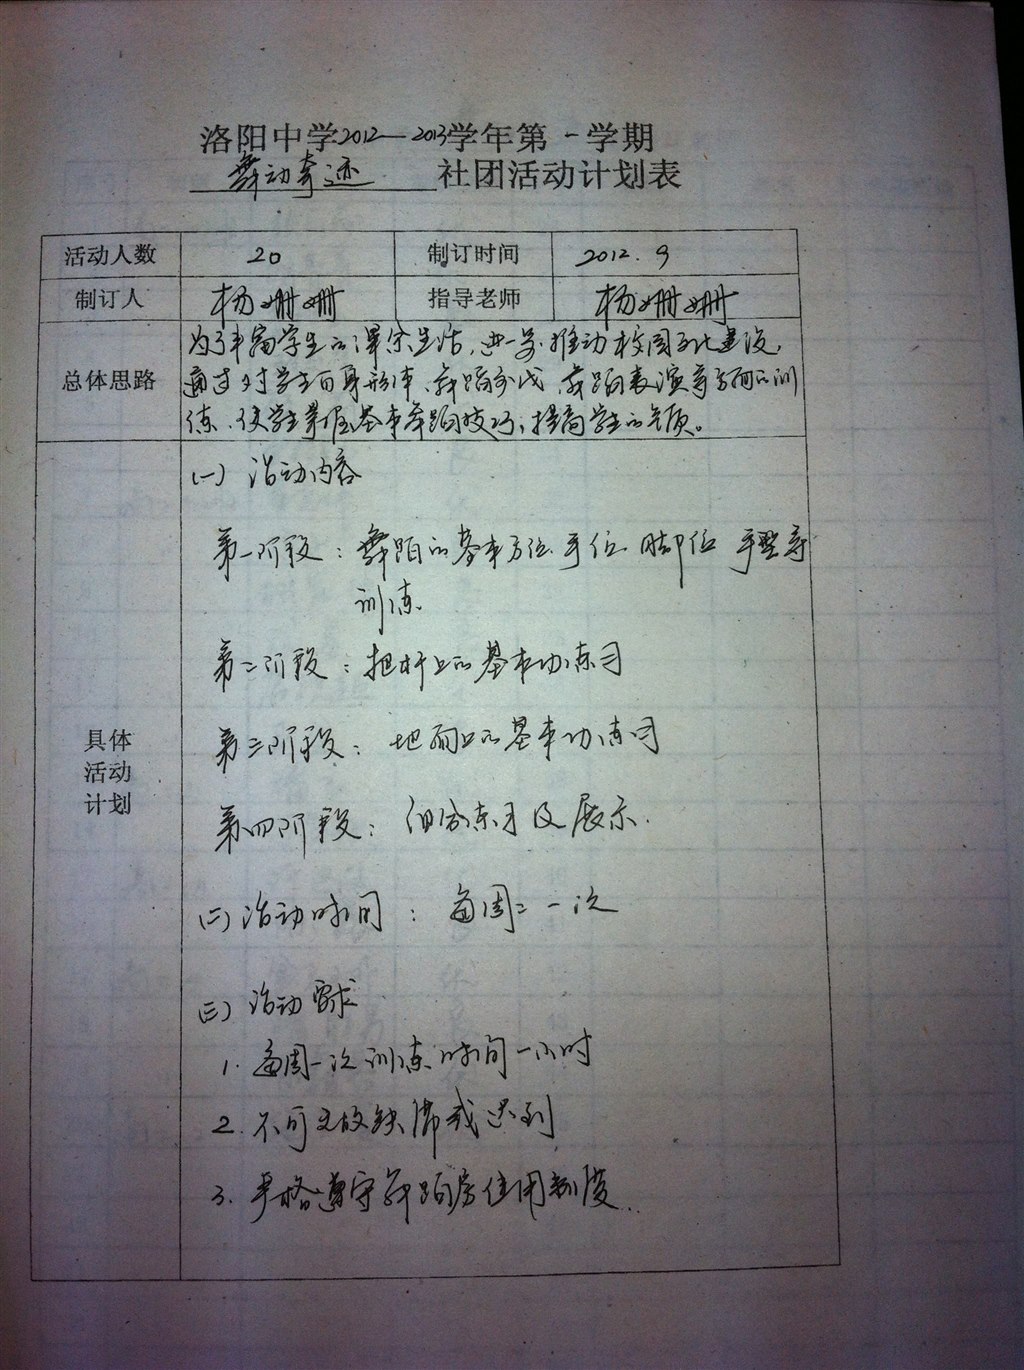 洛阳中学2012—2013学年第一学期
舞动奇迹 社团活动计划表
活动人数 20 制订时间 2012.9
制订人 杨姗姗 指导老师 杨姗姗
总体思路
为了丰富学生的课余生活,进一步推动校园文化建设,
通过对学生的身形体、舞蹈 舞蹈表演等方面的训
练,使学生掌握基本舞蹈技巧,提高学生的气质。
具体
活动
计划
(一) 活动内容
第一阶段:舞蹈的基本方位、手位、脚位 手型等
训练
第二阶段:把杆上的基本功练习
第三阶段:地面上的基本功练习
第四阶段:组合练习及展示.
(二) 活动时间:每周二一次
(三) 活动要求
1. 每周一次训练时间一小时
2. 不可无故缺席或迟到
3. 严格遵守舞蹈房使用制度.